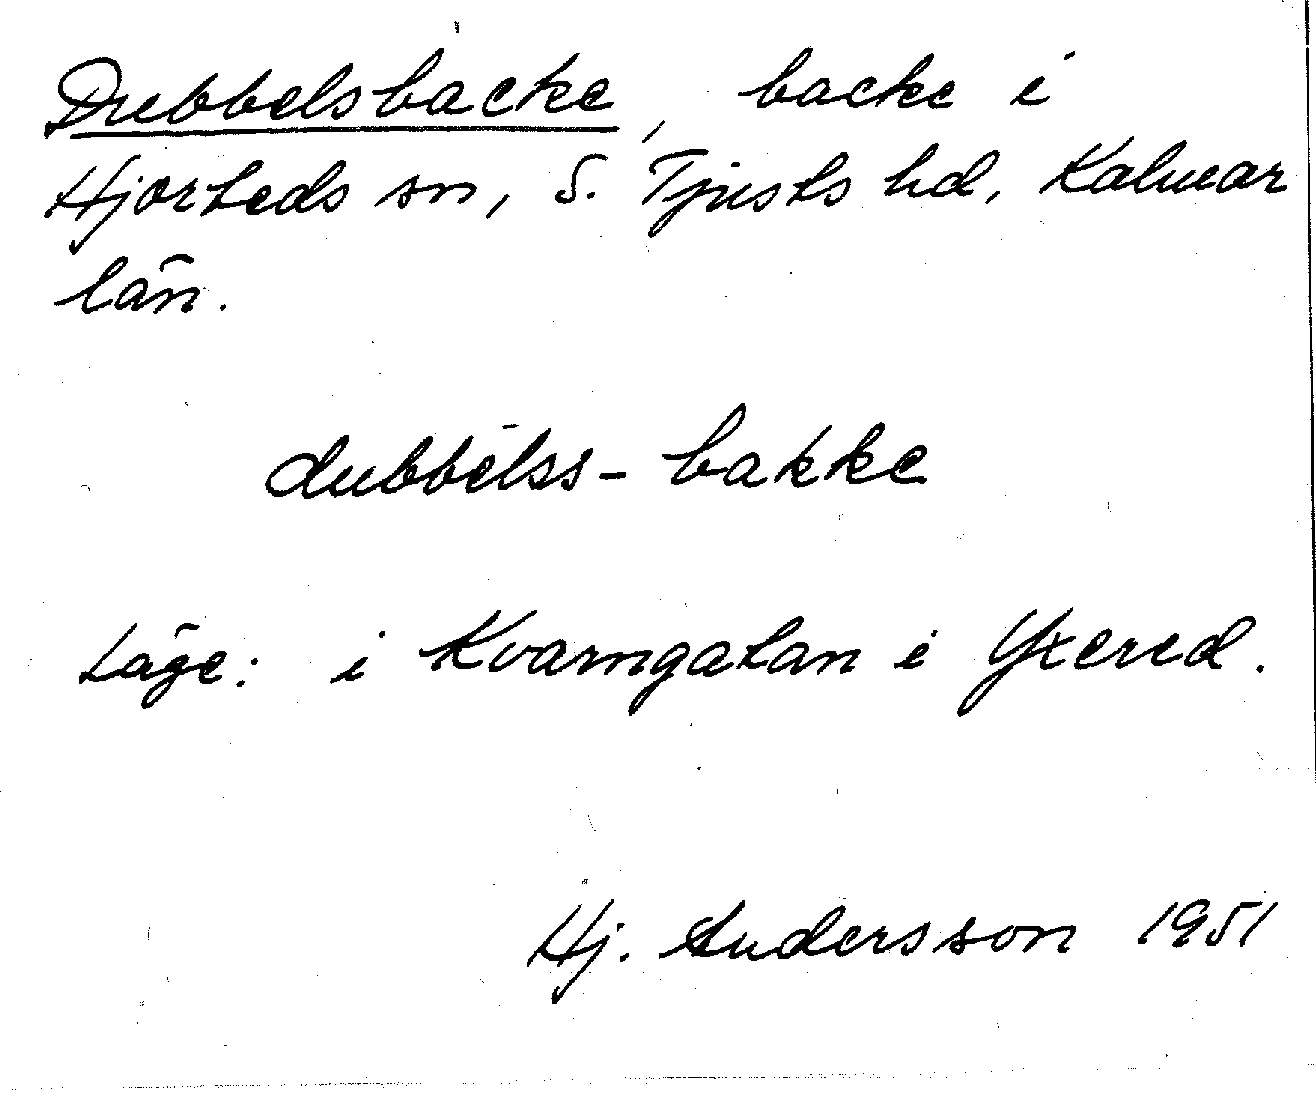 Dubbelsbacke, backe i
Hjorteds sn, S. Tjusts hd, Kalmar
län.
dubbelss-bakke
Läge: i Kvarngatan i Yxered.
Hj. Andersson 1951